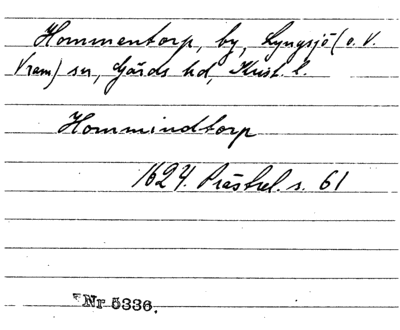 Hommentorp, by, Lyngsjö (o. V.
Vram) sn, Gärds hd, Krist. l.
Hommindtorp
1624. Prästrel. s. 61
Nr 5336.